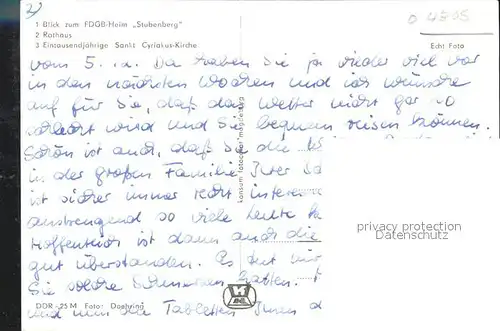 2)
1 Blick zum FDGB-Heim „Stubenberg"
2 Rathaus
3 Eintausendjährige Sankt Cyriakus-Kirche
Echt Foto
vom 5. ... Da haben Sie ja wieder viel vor
in den nächsten Wochen und ich wünsche
auf für Sie, daß das Wetter nicht gar so
schlecht wird und Sie bequem reisen können.
Schön ist auch, daß Sie die
in der großen Familie Ihrer
ist sicher immer recht
anstrengend so viele Leute
Hoffentlich ist dann auch die
gut überstanden. Es tut mir
Sie solche Schmerzen hatten.
und nun die Tabletten Ihnen d
konsum fotocolor magdeburg
privacy protection
Datenschutz
DDR -25 M Foto: Doehring